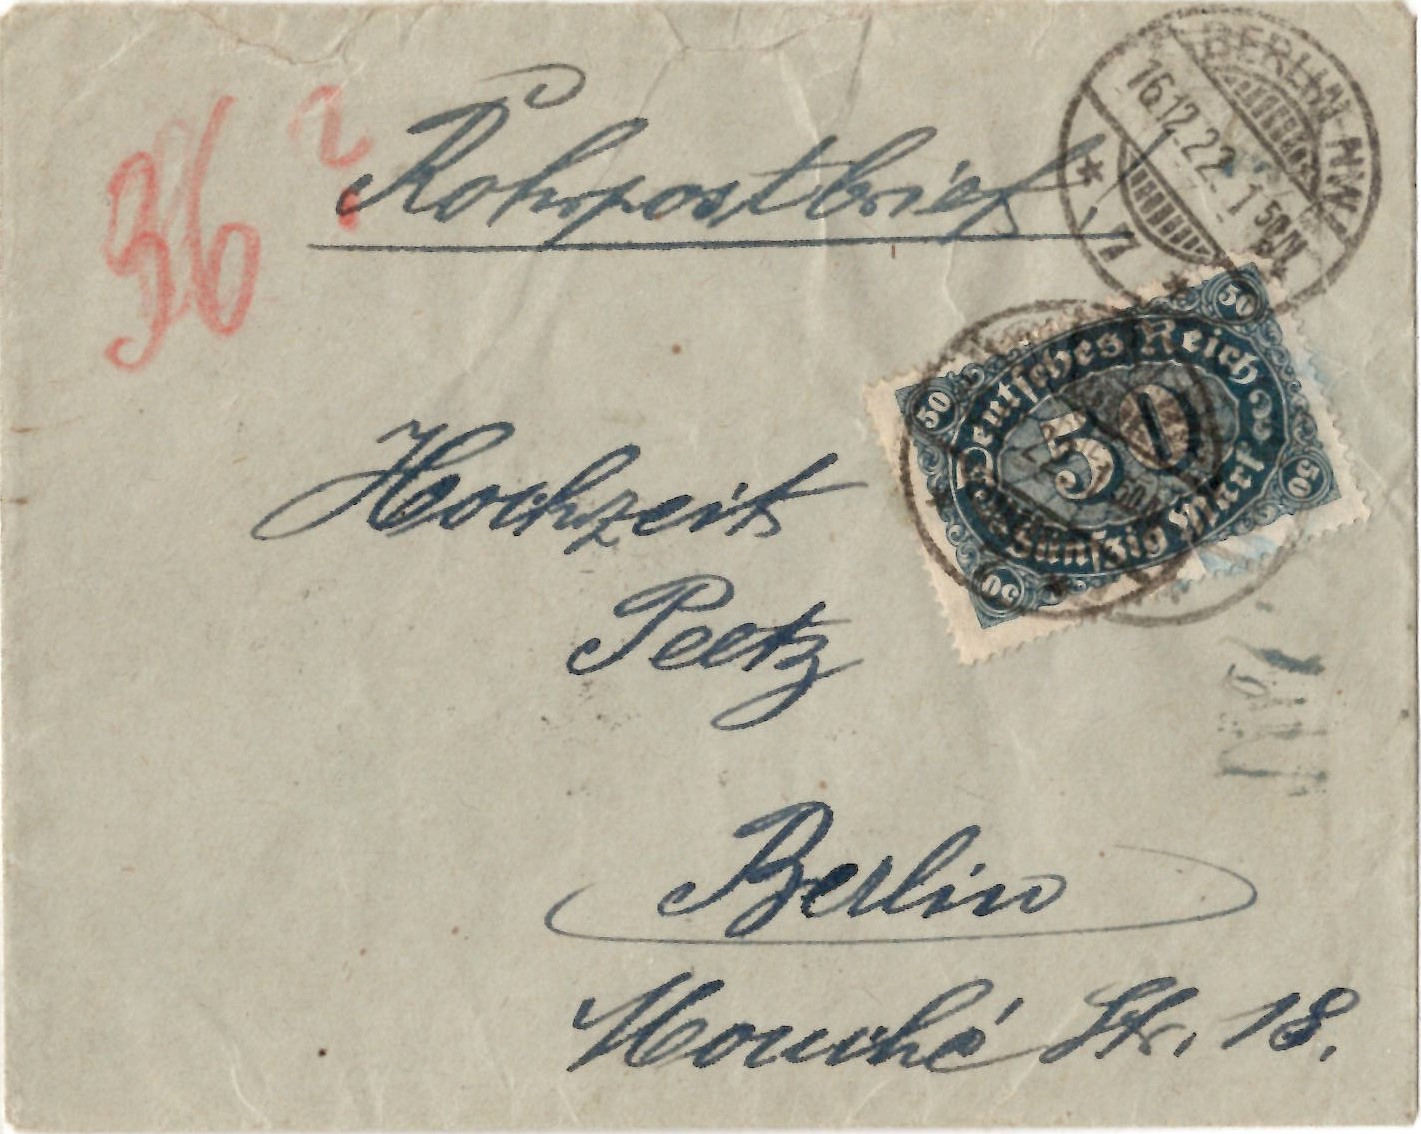 BERLIN NW
16.12.22. 1 50 N
* 7 *
36 ?
Rohrpostbrief
50 50
Deutsches Reich
50
50 50
Fünfzig Mark
Hochzeit
Peetz
Berlin
Str. 18.